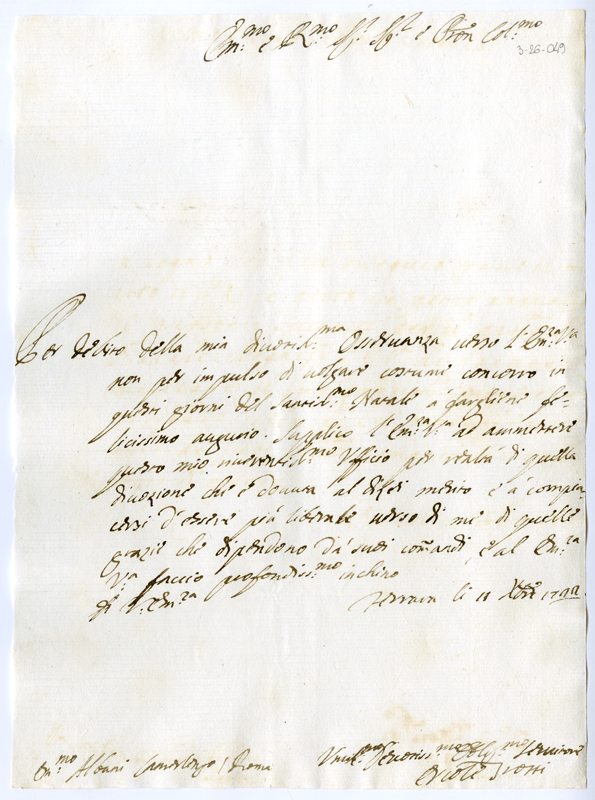 Em.mo e R.mo Sig.r Sig.r e Pron Col.mo
3-26-049
Per debito della mia divotis.ma Osservanza verso l'Em.za V.a
non per impulso di volgare costume concorro in
questi giorni del Santis.mo Natale à fargliene fe-
licissimo augurio. Supplico l'Em.za V.a ad ammettere
questo mio riverentis.mo Ufficio per realtà di quella
divozione che è dovuta al di lei merito e à compia
cersi d'essere più liberale verso di me di quelle
grazie che dipendono da suoi comandi, e al Em.za
V.a faccio profondiss.mo inchino
di V. Em.za
Ferrara li 11 Xbre
Em.mo Albani Camerlengo / Roma
Umil.mo Devotis.mo Servitore